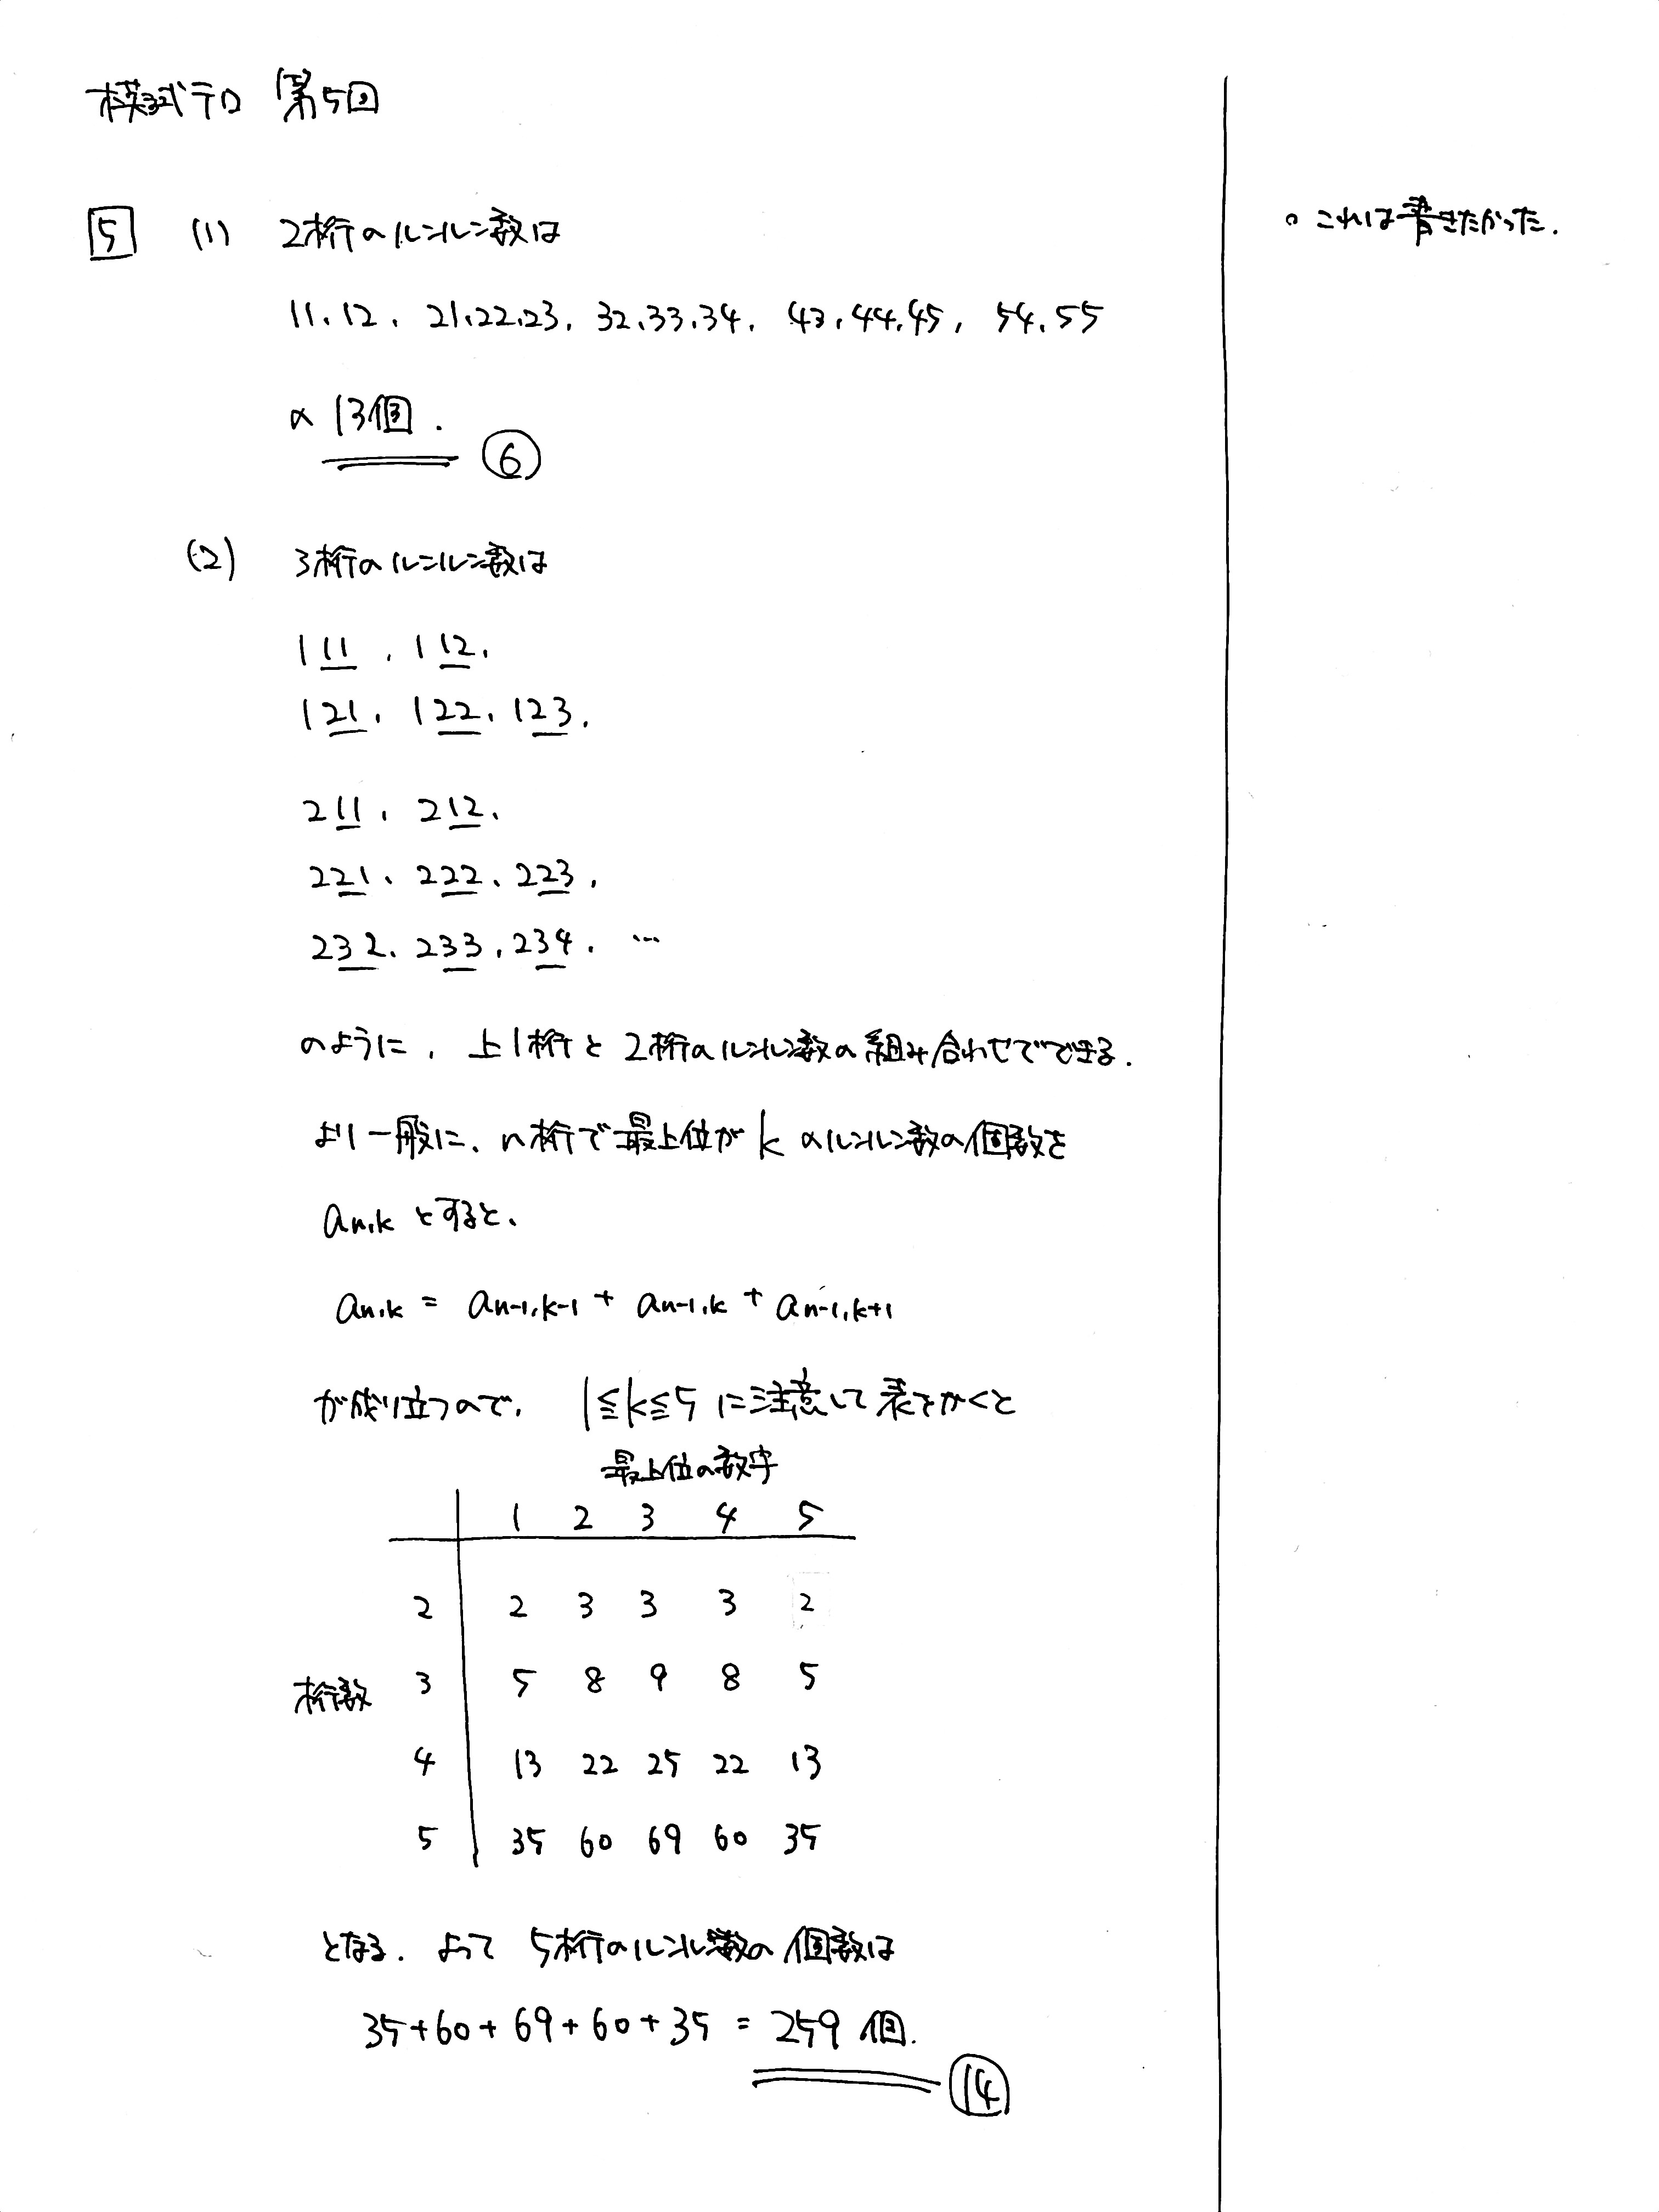 模試テロ 第5回
5 (1) 2桁のルンルン数は
。これは書きたかった.
11, 12, 21, 22, 23, 32, 33, 34, 43, 44, 45, 54, 55
の 13個. ⑥
(2) 3桁のルンルン数は
111, 112,
121, 122, 123,
211, 212,
221, 222, 223,
232, 233, 234, …
のように, 上1桁と2桁のルンルン数の組み合わせでできる.
より一般に, n桁で最上位が k のルンルン数の個数を
an,k とすると,
an,k = an-1,k-1 + an-1,k + an-1,k+1
が成り立つので, 1≦k≦5 に注意して表をかくと
最上位の数字
1 2 3 4 5
2 2 3 3 3 2
桁数 3 5 8 9 8 5
4 13 22 25 22 13
5 35 60 69 60 35
となる. よって 5桁のルンルン数の個数は
35+60+69+60+35 = 259 個. ⑭